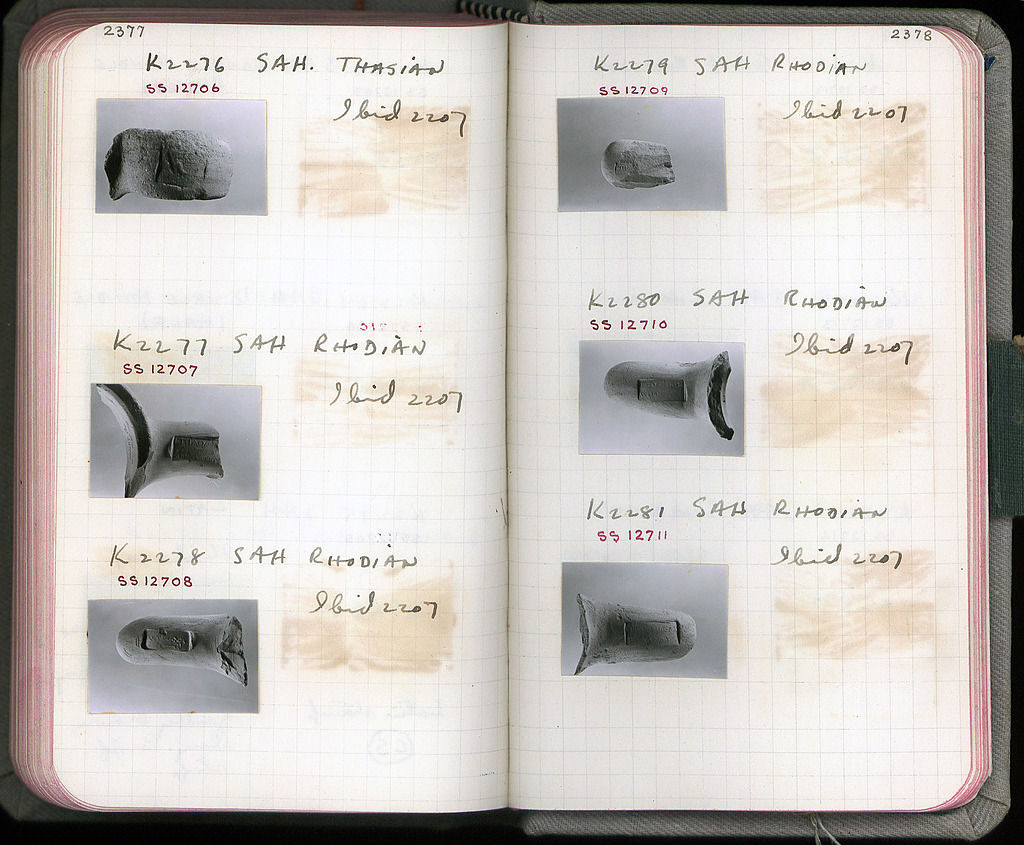 2377
K2276 SAH. THASIAN
SS 12706
Ibid 2207
K2277 SAH RHODIAN
SS 12707
Ibid 2207
K2278 SAH RHODIAN
SS 12708
Ibid 2207
2378
K2279 SAH RHODIAN
SS 12709
Ibid 2207
K2280 SAH RHODIAN
SS 12710
Ibid 2207
K2281 SAH RHODIAN
SS 12711
Ibid 2207